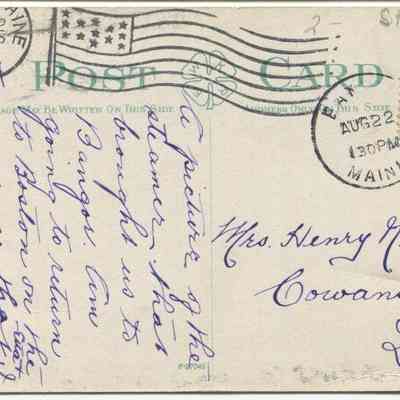 AINE
2-
POST CARD
MAY BE WRITTEN ON THIS SIDE
ADDRESS ONLY ON THIS SIDE
AUG 22
130 PM
MAIN
A picture of the
steamer that
brought us to
Bangor. Am
going to return
to Boston on the
Mrs. Henry
Cowan